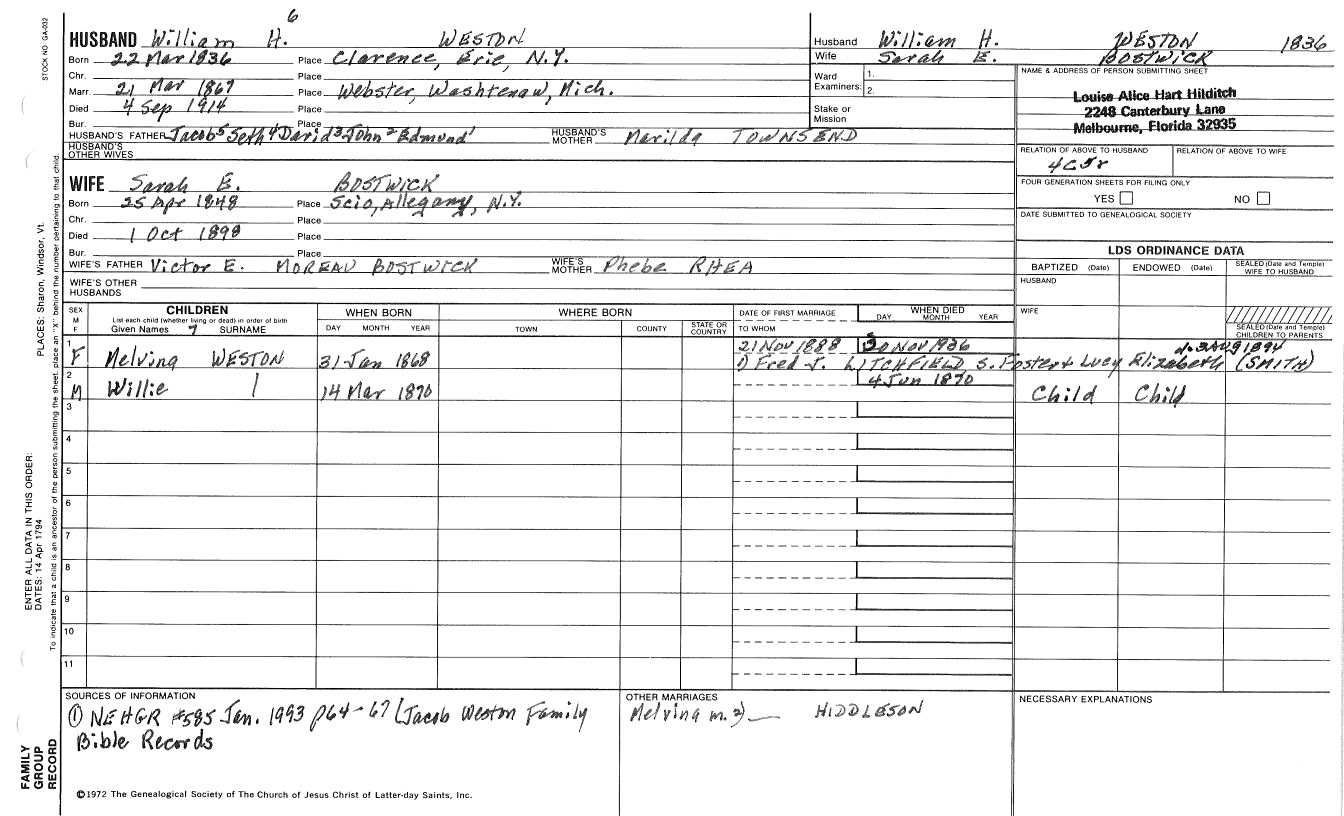 6
HUSBAND William H. WESTON
Born 22 Mar 1836 Place Clarence, Erie, N.Y.
Chr. Place
Marr. 21 Mar 1867 Place Webster, Washtenaw, Mich.
Died 4 Sep 1914 Place
Bur. Place
HUSBAND'S FATHER Jacob⁵ Seth⁴ David³ John² Edmund¹ HUSBAND'S MOTHER Marilda TOWNSEND
HUSBAND'S OTHER WIVES
WIFE Sarah E. BOSTWICK
Born 25 Apr 1848 Place Scio, Allegany, N.Y.
Chr. Place
Died 1 Oct 1898 Place
Bur. Place
WIFE'S FATHER Victor E. MOREAU BOSTWICK WIFE'S MOTHER Phebe RHEA
WIFE'S OTHER HUSBANDS
Husband William H. WESTON 1836
Wife Sarah E. BOSTWICK
Ward Examiners: 1.
2.
Stake or Mission
NAME & ADDRESS OF PERSON SUBMITTING SHEET
Louise Alice Hart Hilditch
2248 Canterbury Lane
Melbourne, Florida 32935
RELATION OF ABOVE TO HUSBAND RELATION OF ABOVE TO WIFE
4C5r
FOUR GENERATION SHEETS FOR FILING ONLY
YES NO
DATE SUBMITTED TO GENEALOGICAL SOCIETY
LDS ORDINANCE DATA
BAPTIZED (Date) ENDOWED (Date) SEALED (Date and Temple) WIFE TO HUSBAND
HUSBAND
WIFE
SEALED (Date and Temple) CHILDREN TO PARENTS
SEX M F
CHILDREN
List each child (whether living or dead) in order of birth
Given Names 7 SURNAME
WHEN BORN
DAY MONTH YEAR
WHERE BORN
TOWN COUNTY STATE OR COUNTRY
DATE OF FIRST MARRIAGE
TO WHOM
WHEN DIED
DAY MONTH YEAR
1 F Melving WESTON 31 Jan 1868 21 Nov 1888 Nov 1936
1) Fred J. LITCHFIELD s. Foster & Lucy Elizabeth (SMITH)
d. 3 AUG 1894
2 M Willie 14 Mar 1870 4 Jun 1870 Child Child
3
4
5
6
7
8
9
10
11
SOURCES OF INFORMATION
① NEHGR #585 Jan. 1993 p64-67 (Jacob Weston Family
Bible Records
OTHER MARRIAGES
Melving m. 2) — HIDDLESON
NECESSARY EXPLANATIONS
©1972 The Genealogical Society of The Church of Jesus Christ of Latter-day Saints, Inc.
STOCK NO. GA-032
PLACES: Sharon, Windsor, Vt.
ENTER ALL DATA IN THIS ORDER:
DATES: 14 Apr 1794
To indicate that a child is an ancestor of the person submitting the sheet, place an "X" behind the number pertaining to that child.
FAMILY
GROUP
RECORD